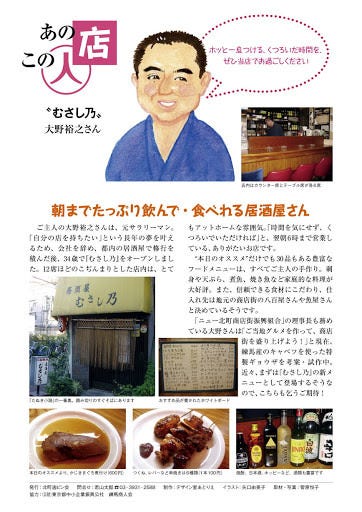 あの
この人
店
ホッと一息つける、くつろいだ時間を、
ぜひ当店でお過ごしください
〝むさし乃〟
大野裕之さん
店内はカウンター席とテーブル席が落ち着
朝までたっぷり飲んで・食べれる居酒屋さん
ご主人の大野裕之さんは、元サラリーマン。
「自分の店を持ちたい」という長年の夢を叶え
るため、会社を辞め、都内の居酒屋で修行を
積んだ後、34歳で「むさし乃」をオープンしまし
た。12席ほどのこぢんまりとした店内は、とて
もアットホームな雰囲気。「時間を気にせず、く
つろいでいただければ」と、翌朝6時まで営業し
ている、ありがたいお店です。
“本日のオススメ”だけでも30品もある豊富な
フードメニューは、すべてご主人の手作り。刺
身や天ぷら、煮魚、焼き魚など家庭的な料理が
大好評。また、信頼できる食材にこだわり、仕
入れ先は地元の商店街の八百屋さんや魚屋さん
と決めているそうです。
「ニュー北町商店街振興組合」の理事長も務め
ている大野さんは「ご当地グルメを作って、商店
街を盛り上げよう!」と現在、
練馬産のキャベツを使った特
製ギョウザを考案・試作中。
近々、まずは「むさし乃」の新メ
ニューとして登場するそうな
ので、こちらも乞うご期待!
居酒屋
むさし乃
「たぬき小路」の一番奥、踏み切りのすぐそばにあります
おすすめ品が書かれたホワイトボード
本日のオススメより、かじきまぐろ煮付け(600円)
つくね、レバーなど串焼きは6種類(1本100円)
焼酎、日本酒、ホッピーなど、酒類も豊富です